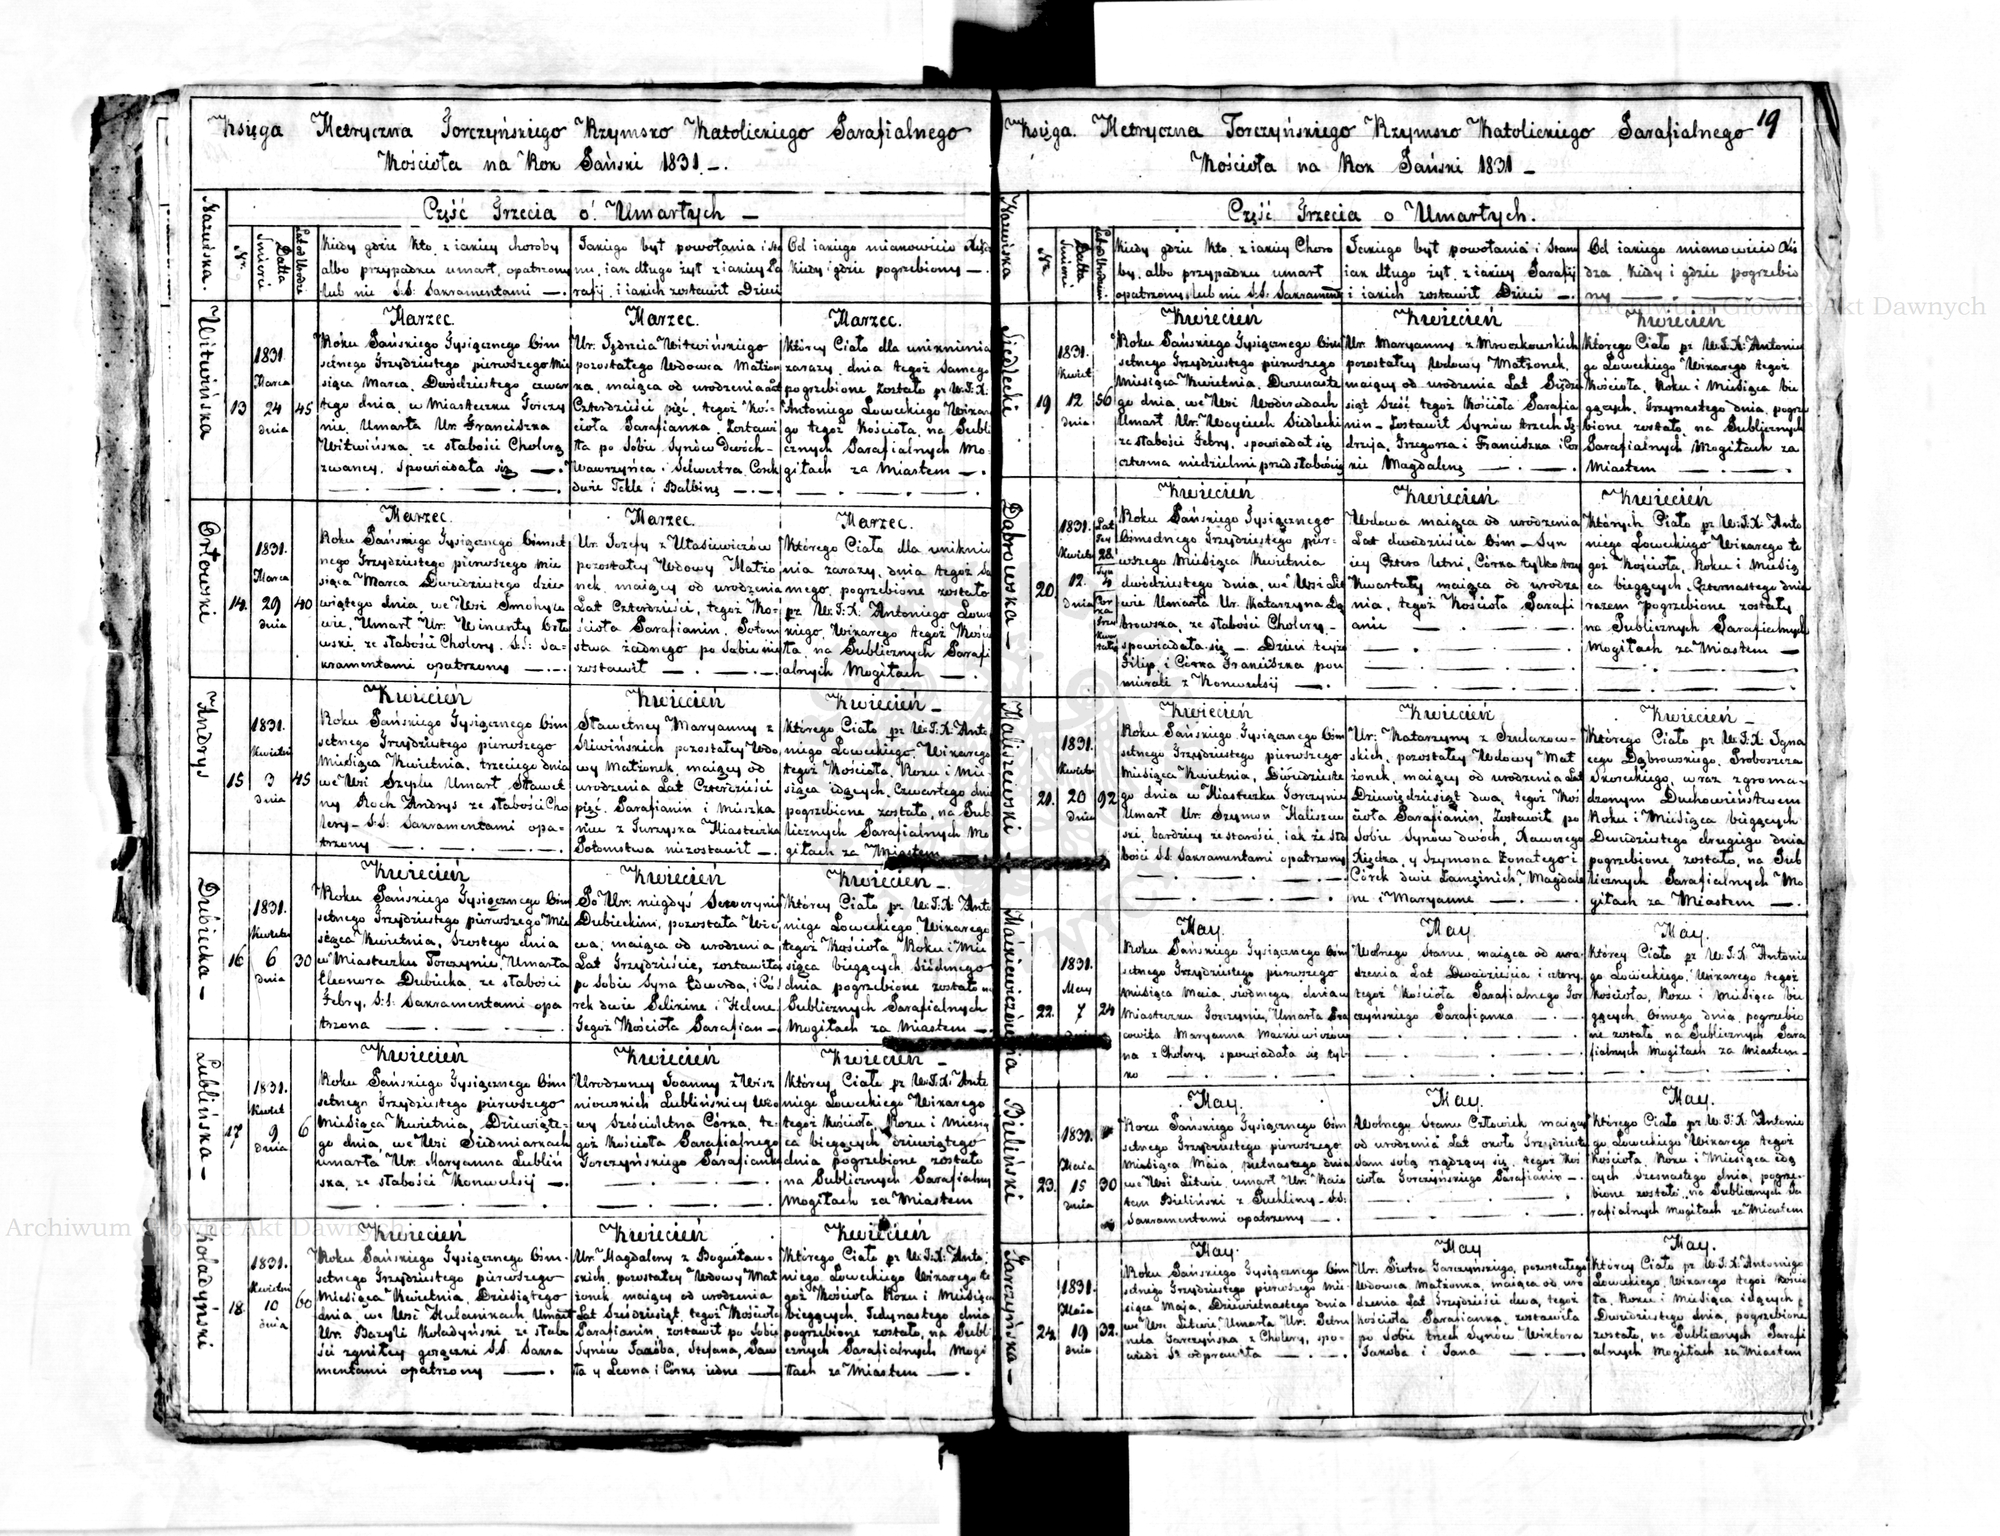 Księga Metryczna Torczyńskiego Rzymsko Katolickiego Parafialnego
Kościoła na Rok Pański 1831. -.
Część Trzecia o Umarłych -
Nazwiska.
Nr.
Datta Śmierci
Lat od Urodz
Kiedy gdzie kto, z iakiey choroby
albo przypadku umarł, opatrzony
lub nie S.S: Sakramentami -.
Jakiego był powołania i sta
nu, iak długo żył z iakiey Pa
rafij, i iakich zostawił Dzieci
Od iakiego mianowicie Xiędza
kiedy i gdzie pogrzebiony -.
Witwińska
13
1831.
Marca
24
dnia
45
Marzec.
Roku Pańskiego Tysiącznego Ośm
setnego Trzydziestego pierwszego Mie
siąca Marca, Dwódziestego czwar
tego dnia, w Miasteczku Torczy
nie, Umarła Ur. Franciszka
Witwińska, ze słabości Cholerą
zwaney, spowiadała się -.
Marzec.
Ur. Jędrzeia Witwińskiego
pozostałego Wdowca Małżon
ka, maiąca od urodzenia Lat
Czterdzieści pięć, tegoż Koś-
cioła Parafianka. Zostawi
ła po Sobie Synów Dwóch-
Wawrzyńca i Selwestra, Corek
dwie Tekle i Balbinę -.-.
Marzec.
Którey Ciało dla uniknienia
zarazy, dnia tegoż Samego
pogrzebione zostało pr W.J.X.
Antoniego Łoweckiego Wikare
go tegoż Kościoła, na Publi
cznych Parafialnych Mo-
giłach za Miastem -.
Orłowski
14.
1831.
Marca
29
dnia
40
Marzec.
Roku Pańskiego Tysiącznego Ośmset
nego Trzydziestego pierwszego Mie
siąca Marca Dwudziestego dzie-
wiątego dnia, we Wsi Smolygo
wie, Umarł Ur: Wincenty Orło
wski, ze słabości Cholery. S.S: Sa-
kramentami opatrzony -.-.
Marzec.
Ur. Jozefy z Ułasiewiczów
pozostałey Wdowy Małżo
nek, maiący od urodzenia
Lat Czterdzieści, tegoż Ko-
ścioła Parafianin, Potom
stwa żadnego po Sobie nie
zostawił -.-.
Marzec.
Którego Ciało dla uniknie
nia zarazy, dnia tegoż Sa
mego, pogrzebione zostało
pr W.J.X. Antoniego Łowe
ckiego, Wikarego tegoż Kościo
ła, na Publicznych Parafi
alnych Mogiłach -.
Andrys
15
1831.
Kwietnia
3
dnia
45
Kwiecień
Roku Pańskiego Tysiącznego Ośm
setnego Trzydziestego pierwszego
Miesiąca Kwietnia, trzeciego dnia
we Wsi Szeplu Umarł Sławet
ny Roch Andrys ze słabości Cho
lery- S.S: Sakramentami opa-
trzony -.-.-.
Kwiecień
Sławetney Maryanny z
Śliwińskich pozostałey Wdo
wy Małżonek, maiący od
urodzenia Lat Czterdzieści
pięć. Parafianin i Mieszka
niec z Turzyska Miasteczka
Potomstwa niezostawił -.
Kwiecień -
Którego Ciało pr W.J.X. Anto
niego Łoweckiego, Wikarego
tegoż Kościoła, Roku i Mie-
siąca idących, Czwartego dnia
pogrzebione zostało, na Pub
licznych Parafialnych Mo
giłach za Miastem
Dubiecka -
16
1831.
Kwietnia
6
dnia
30
Kwiecień
Roku Pańskiego Tysiącznego Ośm
setnego Trzydziestego pierwszego Mie
siąca Kwietnia, Szóstego dnia
w Miasteczku Torczynie, Umarła
Eleonora Dubiecka, ze słabości
Febry, S.S: Sakramentami opa
trzona -.-.-.
Kwiecień
Po Ur: niegdys Seweryni
Dubieckim, pozostała Wdo
wa, maiąca od urodzenia
Lat Trzydzieście, zostawiła
po Sobie Syna Edwarda, i Có
rek dwie Pelixine i Helene,
Tegoż Kościoła Parafian -
Kwiecień -
Którey Ciało pr W.J.X. Anto
niego Łoweckiego, Wikarego
tegoż Kościoła Roku i Mie
siąca bieggcych, Siódmego
dnia pogrzebione zostało na
Publicznych Parafialnych
Mogiłach za Miastem -.
Lublińska -
17
1831.
Kwiet
9
dnia
6
Kwiecień
Roku Pańskiego Tysiącznego Ośm
setnego Trzydziestego pierwszego
Miesiąca Kwietnia, Dziewiąte-
go dnia, we Wsi Siedmiarkach
umarła Ur. Maryanna Lubliń
ska, ze słabości Konwulsij -.
Kwiecień
Urodzoney Joanny z Wisz
niowskich Lublińskiey Wdo
wy Sześcioletna Córka, te-
goż Kościoła Parafialnego
Torczyńskiego Parafianka
Kwiecień -
Którey Ciało pr W.J.X. Anto
niego Łoweckiego Wikarego
tegoż Kościoła, Roku i Miesią
ca bieggcych dziewiątego
dnia pogrzebione zostało
na Publicznych Parafialny
Mogiłach za Miastem
Koładyński
18.
1831.
Kwietni
10
dnia
60
Kwiecień
Roku Pańskiego Tysiącznego Ośm-
setnego Trzydziestego pierwszego
Miesiąca Kwietnia, Dziesiątego
dnia, we Wsi Hulanikach, Umarł
Ur. Bazyli Koładyński, ze słabo
ści zgniłey gorączki S.S. Sakra
mentami opatrzony -.
Kwiecień
Ur. Magdaleny z Bogusław-
skich, pozostałey Wdowy Mał
żonek, maiący od urodzenia
Lat Sześdziesiąt, tegoż Kościoła
Parafianin, zostawił po Sobie
Synów Jakóba, Stefana, Paw
ła y Leona i Córkę iedne -
Kwiecień
Którego Ciało pr W.J.X: Anto-
niego Łoweckiego Wikarego te
goż Kościoła Roku i Miesiąca
bieggcych, Jedynastego dnia
pogrzebione zostało, na Publi
cznych Parafialnych Mogi
łach za Miastem -.
19
Księga. Metryczna Torczyńskiego Rzymsko Katolickiego Parafialnego
Kościoła na Rok Pański 1831 -
Część Trzecia o Umarłych.
Nazwiska
Nr.
Datta Śmierci
Lat od Urodzeni.
Kiedy gdzie kto, z iakiey Choro
by, albo przypadku umarł
opatrzony, lub nie S.S. Sakrament
Jakiego był powołania i Stanu
iak długo żył, z iakiey Parafij
i iakich zostawił Dzieci -.
Od iakiego mianowicie Xię
dza, kiedy i gdzie pogrzebio
ny -
Siedlecki
19
1831.
Kwiet
12
dnia
56
Kwiecień
Roku Pańskiego Tysiącznego Ośm
setnego Trzydziestego pierwszego
Miesiąca Kwietnia, Dwunaste
go dnia, we Wsi Woderadach
Umarł Ur: Woyciech Siedlecki
ze słabości Febry, spowiadał się
czterma niedzielmi przed słabością
Kwiecień
Ur. Maryanny z Mroczkowskich
pozostałey Wdowy Małżonek,
maiący od urodzenia Lat Pięćdzie
siąt Sześć tegoż Kościoła Parafia
nin- Zostawił Synów trzech Ję
drzeja, Grzegorza i Franciszka i Cor
kie Magdalenę -.-.
Kwiecień
Którego Ciało pr W.J.X: Antonie
go Łoweckiego Wikarego tegoż
Kościoła, Roku i Miesiąca bie
gących, Trzynastego dnia, pogrze
bione zostało, na Publicznych
Parafialnych Mogiłach za
Miastem -.-.-.
Dąbrowska -
20.
1831.
Kwietn
12.
dnia
28.
Kwiecień
Roku Pańskiego Tysiącznego
Ośmsetnego Trzydziestego pier-
wszego Miesiąca Kwietnia
dwódziestego dnia, we Wsi Lit
wie Umarła Ur. Katarzyna Dą
browska, ze słabości Cholery -
spowiadała się -. Dzieci teyże
Filip, i Córka Franciszka pou
mierali z Konwulsij -.
Kwiecień
Wdowa maiąca od urodzenia
Lat dwadzieścia Ośm - Syn
iey Cztero letni, Córka tylko trzy
Kwartały maiąca od urodze
nia, tegoż Kościoła Parafi
anie -.-.
Kwiecień
Których Ciało pr W.J.X. Anto
niego Łoweckiego Wikarego te
goż Kościoła, Roku i Miesią
ca bieggcych, Czternastego dnia
razem pogrzebione zostały
na Publicznych Parafialnych
Mogiłach za Miastem -
Maliszewski
21.
1831.
Kwietn
20
dnia
92
Kwiecień
Roku Pańskiego Tysiącznego Ośm
setnego Trzydziestego pierwszego
Miesiąca Kwietnia, Dwódzieste
go dnia w Miasteczku Torczynie
Umarł Ur. Szymon Maliszew
ski, bardziey ze starości, iak ze sła
bości S.S. Sakramentami opatrzony
Kwiecień
Ur: Katarzyny z Szularow-
skich, pozostałey Wdowy Mał
żonek, maiący od urodzenia Lat
Dziewięćdziesiąt dwa, tegoż Koś
cioła Parafianin, Zostawił po
Sobie Synów dwóch, Xawerego
Xiędza, y Szymona Żonatego i
Córek dwie Zamężnich, Magdale
ne i Maryanne -.-.
Kwiecień -
Którego Ciało pr W.J.X. Igna
cego Dąbrowskiego, Proboszcza
Skoreckiego, wraz zgroma-
dzonym Duchowieństwem
Roku i Miesiąca bieggcych
Dwódziestego drugiego dnia
pogrzebione, zostało, na Pub
licznych Parafialnych Mo
giłach za Miastem -
Maćkiewiczówna
22.
1831.
May
7
24
May.
Roku Pańskiego Tysiącznego Ośm
setnego Trzydziestego pierwszego
Miesiąca Maia, siódmego dnia w
Miasteczku Torczynie, Umarła Pra
cowita Maryanna Maćkiewiczów
na z Cholery, spowiadała się tyl-
ko -.-.
May
Wolnego Stanu, maiąca od uro-
dzenia Lat Dwadzieścia i cztery,
tegoż Kościoła Parafialnego Tor
czyńskiego Parafianka -.-.
May.
Którey Ciało pr W.J.X. Antonie
go Łoweckiego, Wikarego tegoż
Kościoła, Roku i Miesiąca bie
gących, Ośmego dnia, pogrzebio
ne zostało, na Publicznych Para
fialnych Mogiłach za Miastem -
Bieliński
23.
1831.
Maia
15
dnia
30
May.
Roku Pańskiego Tysiącznego Ośm
setnego Trzydziestego pierwszego
Miesiąca Maia, pietnastego dnia
we Wsi Litwie, umarł Ur. Kaie
tan Bieliński z Puchliny S.S:
Sakramentami opatrzony -.
May.
Wolnego Stanu Człowiek maiący
od urodzenia Lat około Trzydziestu
Sam sobą rządzący się, tegoż Koś
cioła Torczyńskiego Parafianin -.
May.
Którego Ciało pr W.J.X. Antonie
go Łoweckiego Wikarego tegoż
Kościoła, Roku i Miesiąca idą
cych Szesnastego dnia, pogrze-
bione zostało, na Publicznych Pa
rafialnych Mogiłach za Miastem
Garczyńska -
24.
1831.
Maia
19
dnia
32.
May.
Roku Pańskiego Tysiącznego Ośm
setnego Trzydziestego pierwszego Mie-
siąca Maja, Dziewietnastego dnia
we Wsi Litwie, Umarła Ur: Petro
nela Garczyńska z Cholery, spo-
wiedź Sę odprawiła -.-.
May
Ur: Piotra Garczyńskiego, pozostałego
Wdowca Małżonka, maiąca od uro
dzenia Lat Trzydzieści dwa, tegoż
Kościoła Parafianka, zostawiła
po Sobie trzech Synów Wiktora
Jakoba i Jana -.-.
May.
Którey Ciało pr W.J.X: Antoniego
Łoweckiego, Wikarego tegoż Kościo
ła, Roku i Miesiąca idących,
Dwódziestego dnia, pogrzebione
zostało, na Publicznych Parafi
alnych Mogiłach za Miastem
Archiwum Główne Akt Dawnych
Archiwum Główne Akt Dawnych